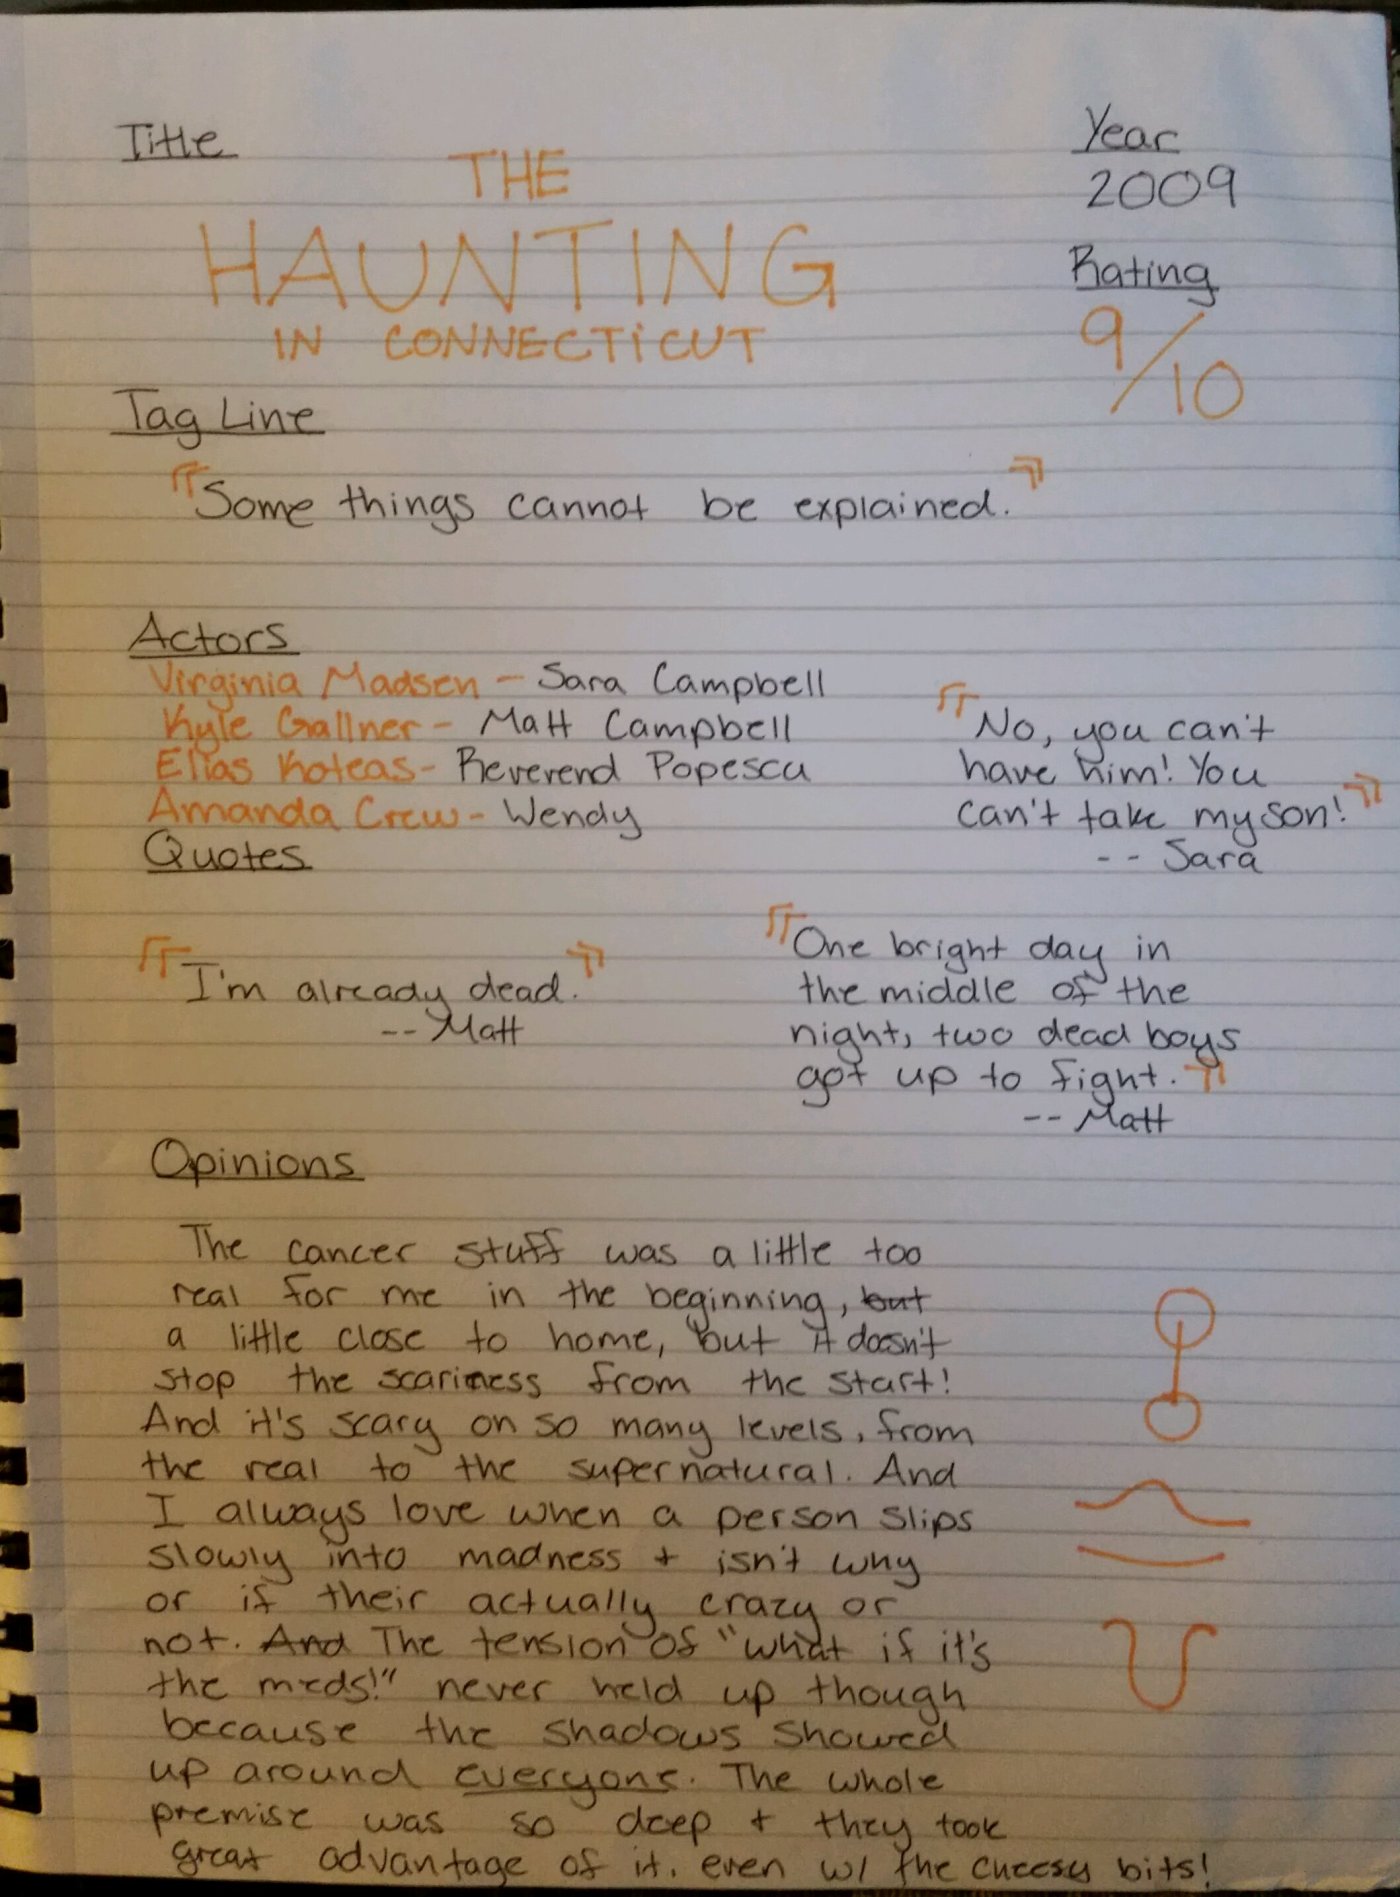 Title
THE
HAUNTING
IN CONNECTICUT
Year
2009
Rating
9/10
Tag Line
"Some things cannot be explained."
Actors
Virginia Madsen - Sara Campbell
Kyle Gallner - Matt Campbell
Elias Koteas - Reverend Popescu
Amanda Crew - Wendy
"No, you can't
have him! You
can't take my son!"
-- Sara
Quotes
"I'm already dead."
-- Matt
"One bright day in
the middle of the
night, two dead boys
got up to fight."
-- Matt
Opinions
The cancer stuff was a little too
real for me in the beginning, but
a little close to home, but it doesn't
stop the scariness from the start!
And it's scary on so many levels, from
the real to the supernatural. And
I always love when a person slips
slowly into madness + isn't why
or if their actually crazy or
not. And The tension of "what if it's
the meds!" never held up though
because the shadows showed
up around everyone. The whole
premise was so deep + they took
great advantage of it. even w/ the cheesy bits!